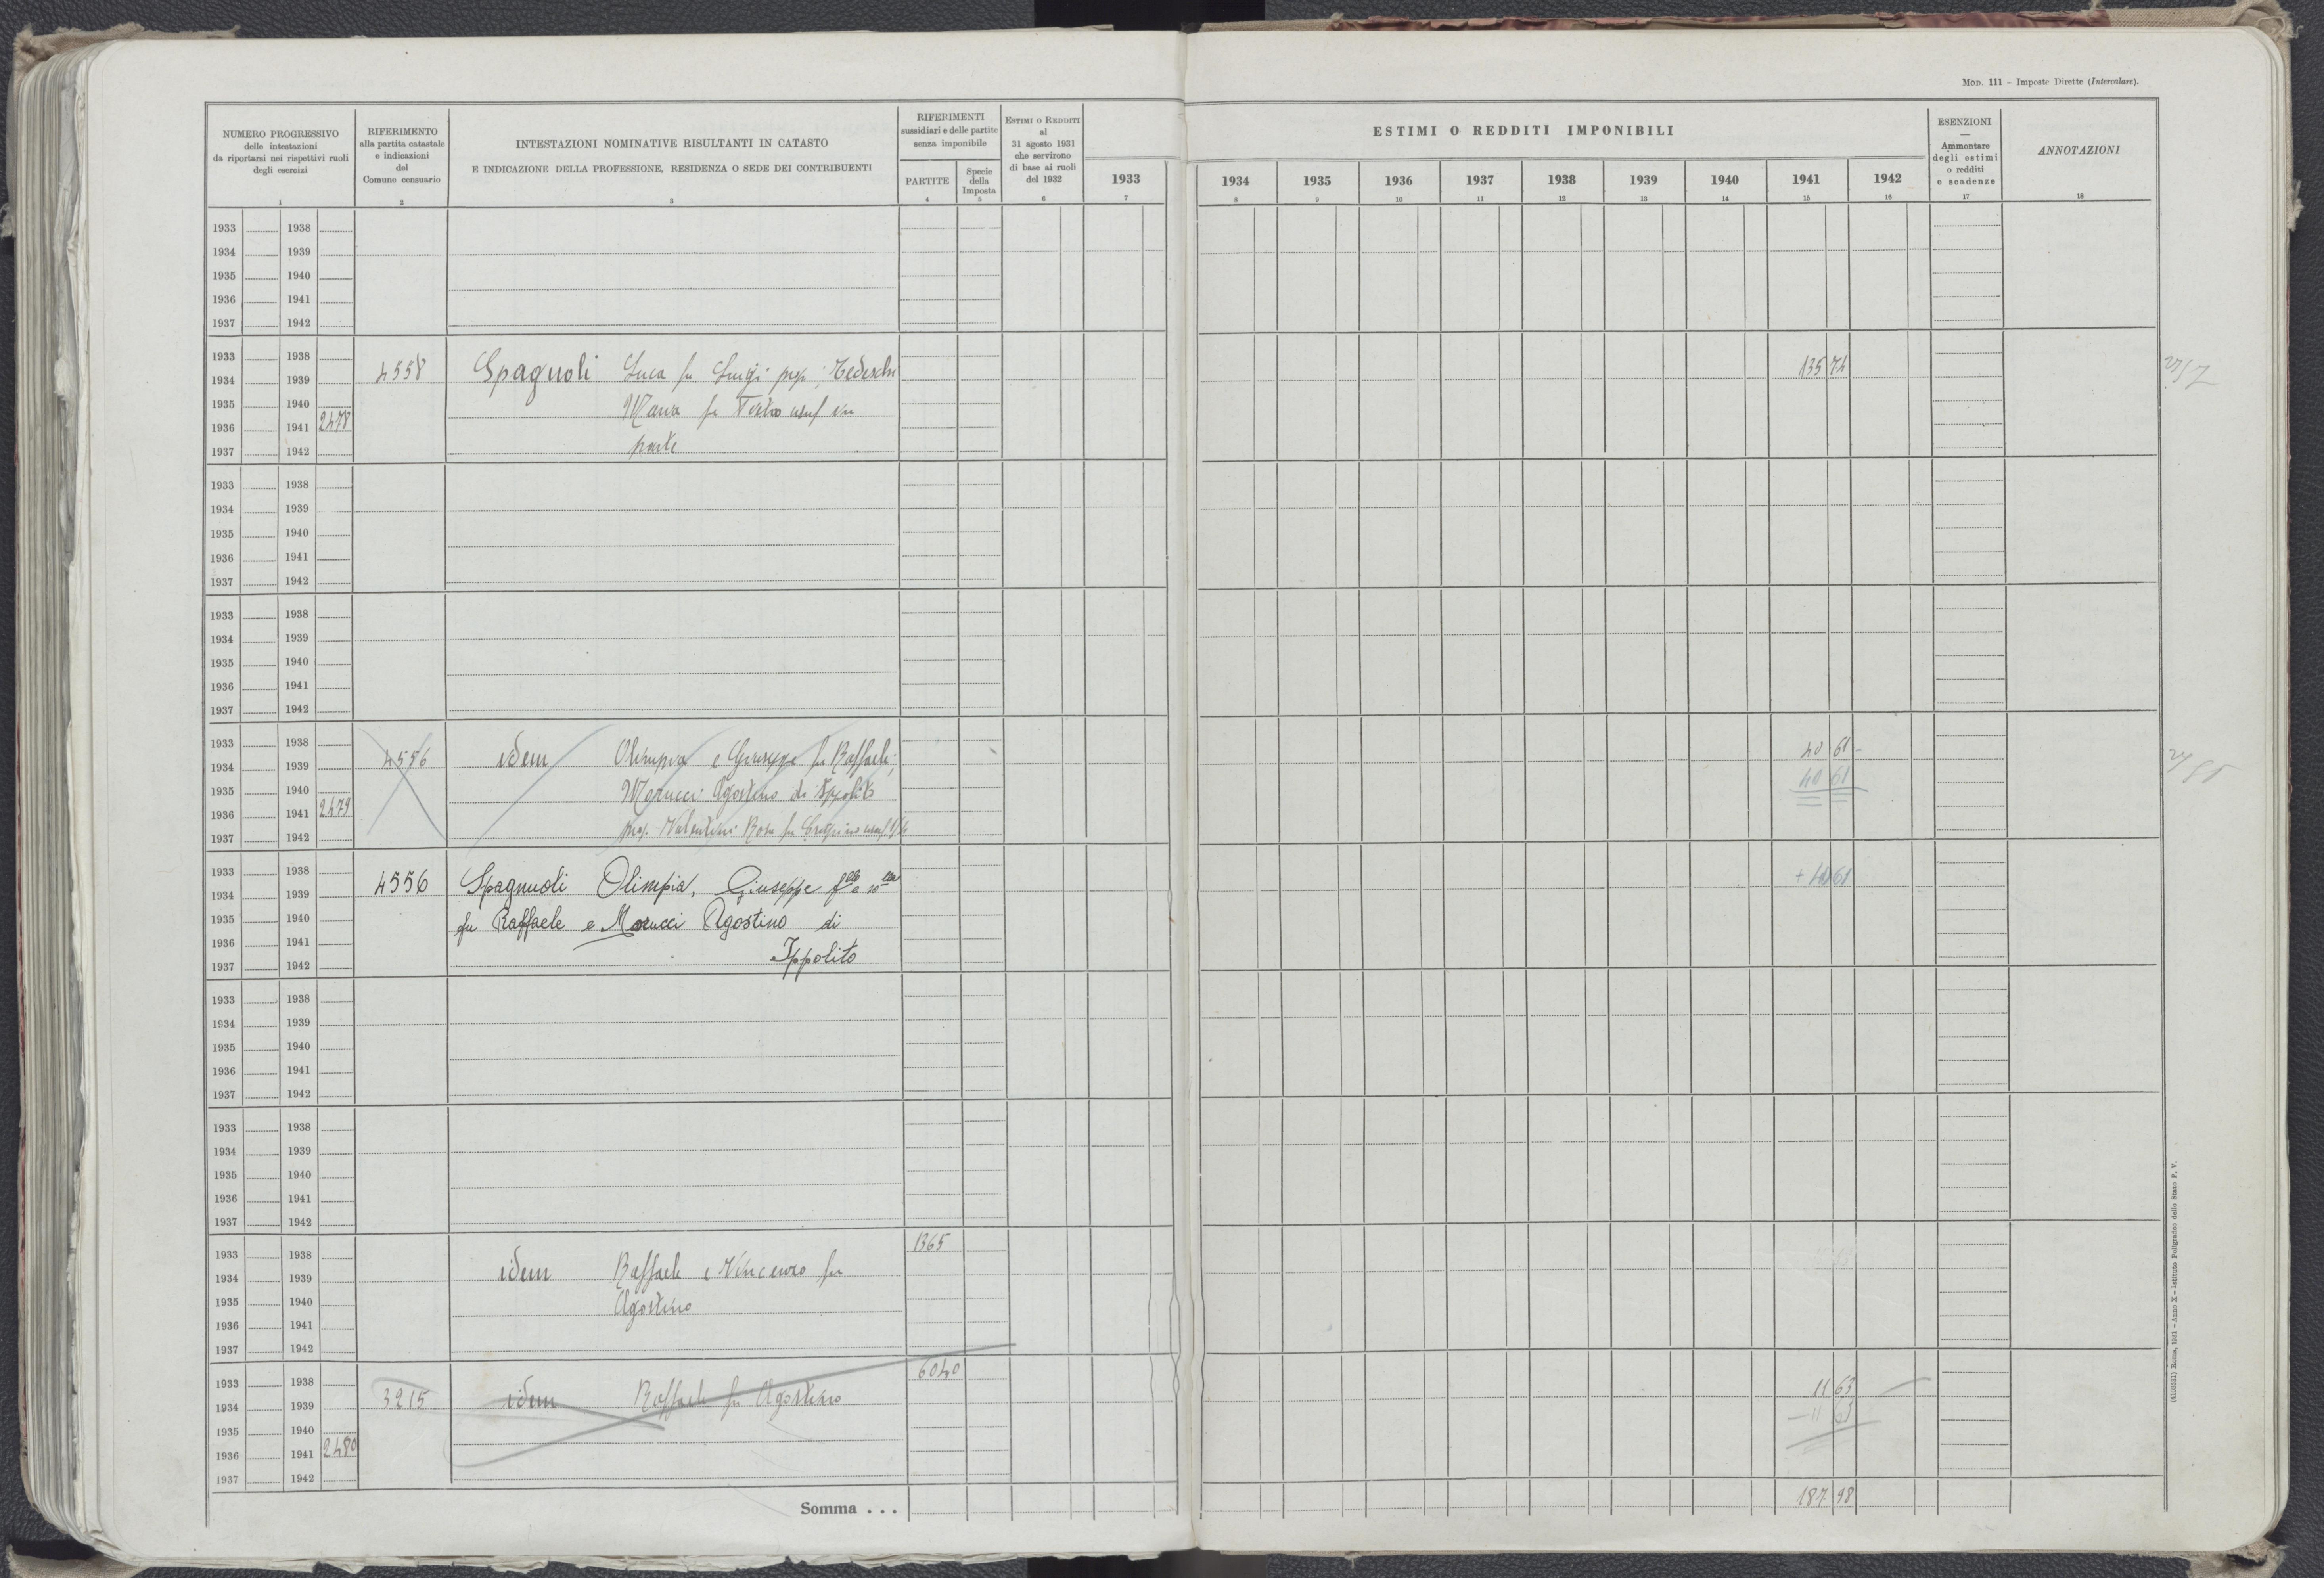 Mod. 111 - Imposte Dirette (Intercalare).
NUMERO PROGRESSIVO
delle intestazioni
da riportarsi nei rispettivi ruoli
degli esercizi
1
RIFERIMENTO
alla partita catastale
e indicazioni
del
Comune censuario
2
INTESTAZIONI NOMINATIVE RISULTANTI IN CATASTO
E INDICAZIONE DELLA PROFESSIONE, RESIDENZA O SEDE DEI CONTRIBUENTI
3
RIFERIMENTI
sussidiari e delle partite
senza imponibile
PARTITE
4
Specie
della
Imposta
5
ESTIMI O REDDITI
al
31 agosto 1931
che servirono
di base ai ruoli
del 1932
6
ESTIMI O REDDITI IMPONIBILI
1933 1934 1935 1936 1937 1938 1939 1940 1941 1942
7 8 9 10 11 12 13 14 15 16
ESENZIONI
—
Ammontare
degli estimi
o redditi
e scadenze
17
ANNOTAZIONI
18
1933 1938
1934 1939
1935 1940
1936 1941
1937 1942
1933 1938
1934 1939 4558 Spagnoli Luca fu Luigi prop; Tedeschi 135 74
1935 1940 Maria fu Pietro usuf in
1936 1941 2478
1937 1942 parte
1933 1938
1934 1939
1935 1940
1936 1941
1937 1942
1933 1938
1934 1939
1935 1940
1936 1941
1937 1942
1933 1938 40 61
1934 1939 4556 idem Olimpia e Giuseppe fu Raffaele; 40 61
1935 1940 Morucci Agostino di Ippolito
1936 1941 2479
1937 1942 prop. Valentini Rosa fu Crispino usuf
1933 1938
1934 1939 4556 Spagnuoli Olimpia, Giuseppe + 40 61
1935 1940 fu Raffaele e Morucci Agostino di
1936 1941
1937 1942 Ippolito
1933 1938
1934 1939
1935 1940
1936 1941
1937 1942
1933 1938
1934 1939
1935 1940
1936 1941
1937 1942
1933 1938 1365
1934 1939 idem Raffaele e Vincenzo fu
1935 1940 Agostino
1936 1941
1937 1942
1933 1938 6040
1934 1939 3215 idem Raffaele fu Agostino 11 63
1935 1940 - 11 63
1936 1941 2480
1937 1942
Somma . . . 187 98
(4103531) Roma, 1931 - Anno X - Istituto Poligrafico dello Stato P. V.